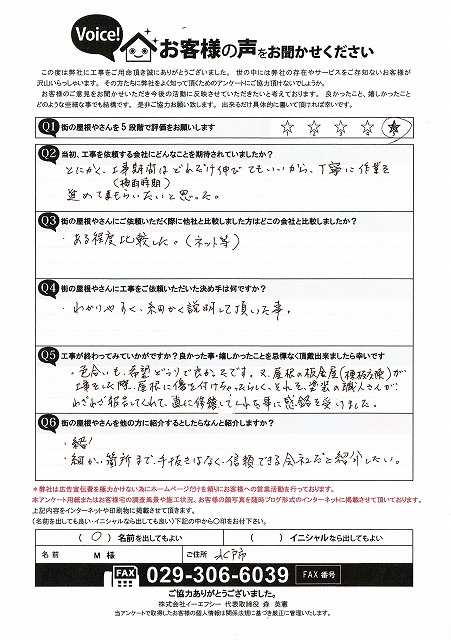 Voice!
お客様の声をお聞かせください
この度は弊社に工事をご用命頂き誠にありがとうございました。 世の中には弊社の存在やサービスをご存知ないお客様が
沢山いらっしゃいます。 その方たちに弊社をよく知って頂くためのアンケートにご協力頂けないでしょうか。
お客様のご意見をお聞かせいただき今後の活動に反映させていただきたいと考えております。 良かったこと、嬉しかったこと
どのような些細な事でも結構です。 是非ご協力お願い致します。 出来るだけ具体的に書いて頂ければ幸いです。
Q1 街の屋根やさんを5段階で評価をお願いします
Q2 当初、工事を依頼する会社にどんなことを期待されていましたか?
とにかく、工事期間はどれだけ伸びてもいいから、丁寧に作業を
(梅雨時期)
進めてもらいたいと思った。
Q3 街の屋根やさんにご依頼いただく際に他社と比較しました方はどこの会社と比較しましたか?
・ある程度比較した。(ネット等)
Q4 街の屋根やさんに工事をご依頼いただいた決め手は何ですか?
・わかりやすく、細かく説明して頂いた事。
Q5 工事が終わってみていかがですか? 良かった事・嬉しかったことを忌憚なく頂戴出来ましたら幸いです
・色合いも、希望どうりで良かったです。又、屋根の板金屋( )が
工事をした際、屋根に傷を付けちゃったらしく、それを、塗装の職人さんが、
わざわざ報告してくれて、直に修繕してくれた事に感銘を受けました。
Q6 街の屋根やさんを他の方に紹介するとしたらなんと紹介しますか?
・細かい箇所まで、手抜きはなく、信頼できる会社だと紹介したい。
*弊社は広告宣伝費を極力かけない為にホームページだけを頼りにお客様への営業活動を行っております。
本アンケート用紙またはお客様宅の調査風景や施工状況、お客様の顔写真を随時ブログ形式のインターネットに掲載させて頂いております。
上記内容をインターネットや印刷物に掲載させて頂きます。
(名前を出しても良い・イニシャルなら出しても良い)下記の中から〇印をお付け下さい。
( 〇 ) 名前を出してもよい ( ) イニシャルなら出してもよい
名前 M 様 ご住所 水戸市
FAX 029-306-6039 FAX番号
ご協力ありがとうございました。
株式会社イーエフシー 代表取締役 森 英憲
当アンケートで取得したお客様の個人情報は関係法規に基づき厳正に管理いたします。